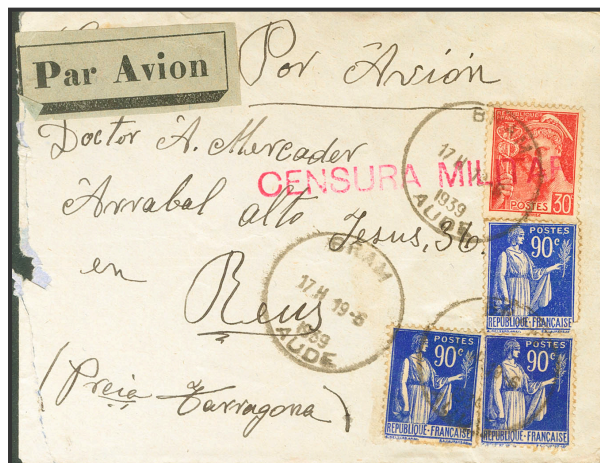 Par Avion
Por Avión
Doctor A. Mercader
CENSURA MILITAR
Arrabal alto
Jesus, 36.
en
Reus
(Pcia Tarragona)
17 H
1939
AUDE
BRAM
17 H 19-6
1939
AUDE
POSTES 30
POSTES
90c
REPUBLIQUE-FRANÇAISE
POSTES
90c
REPUBLIQUE-FRANÇAISE
POSTES
90c
REPUBLIQUE-FRANÇAISE